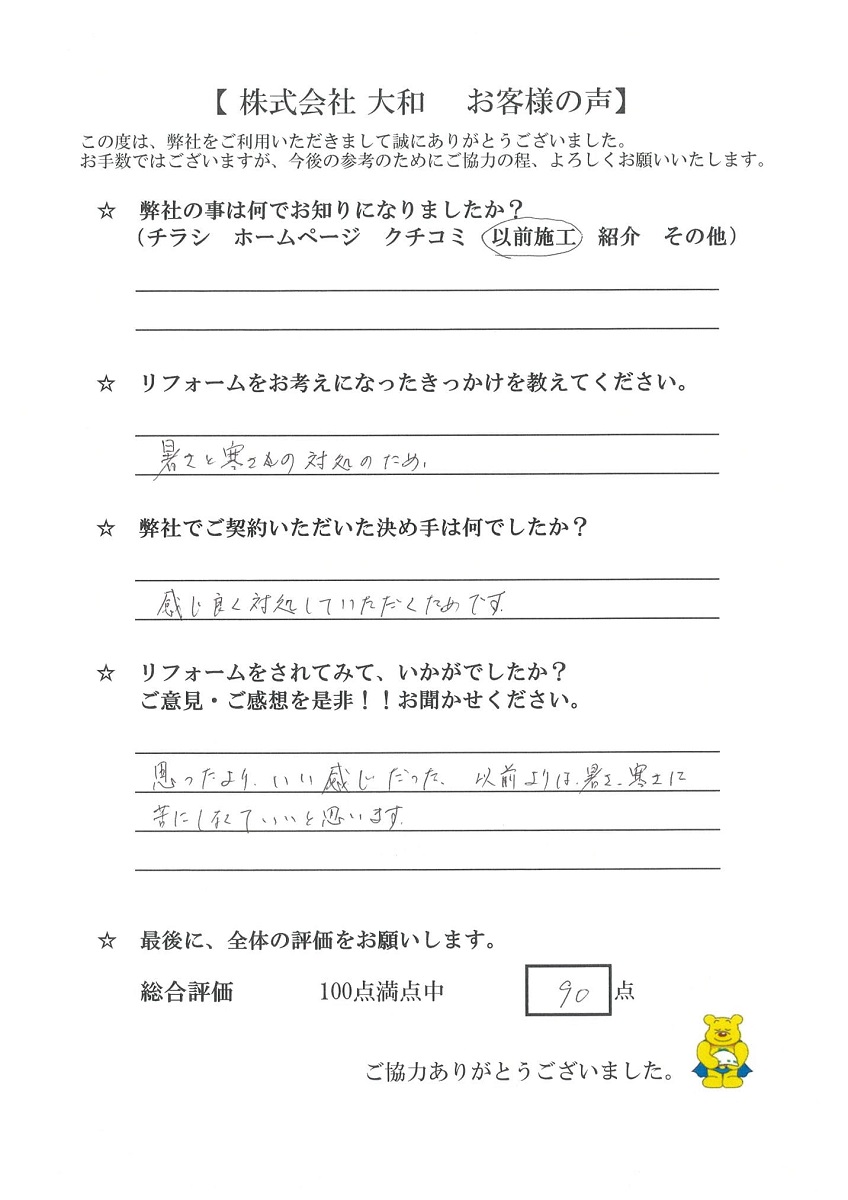 【 株式会社 大和 お客様の声】
この度は、弊社をご利用いただきまして誠にありがとうございました。
お手数ではございますが、今後の参考のためにご協力の程、よろしくお願いいたします。
☆ 弊社の事は何でお知りになりましたか？
（チラシ ホームページ クチコミ 以前施工 紹介 その他）
☆ リフォームをお考えになったきっかけを教えてください。
暑さと寒さの対処のため、
☆ 弊社でご契約いただいた決め手は何でしたか？
感じ良く対処していただくためです。
☆ リフォームをされてみて、いかがでしたか？
ご意見・ご感想を是非！！お聞かせください。
思ったより、いい感じだった、以前よりは、暑さ、寒さに
苦にしなくていいと思います。
☆ 最後に、全体の評価をお願いします。
総合評価 100点満点中 90 点
ご協力ありがとうございました。